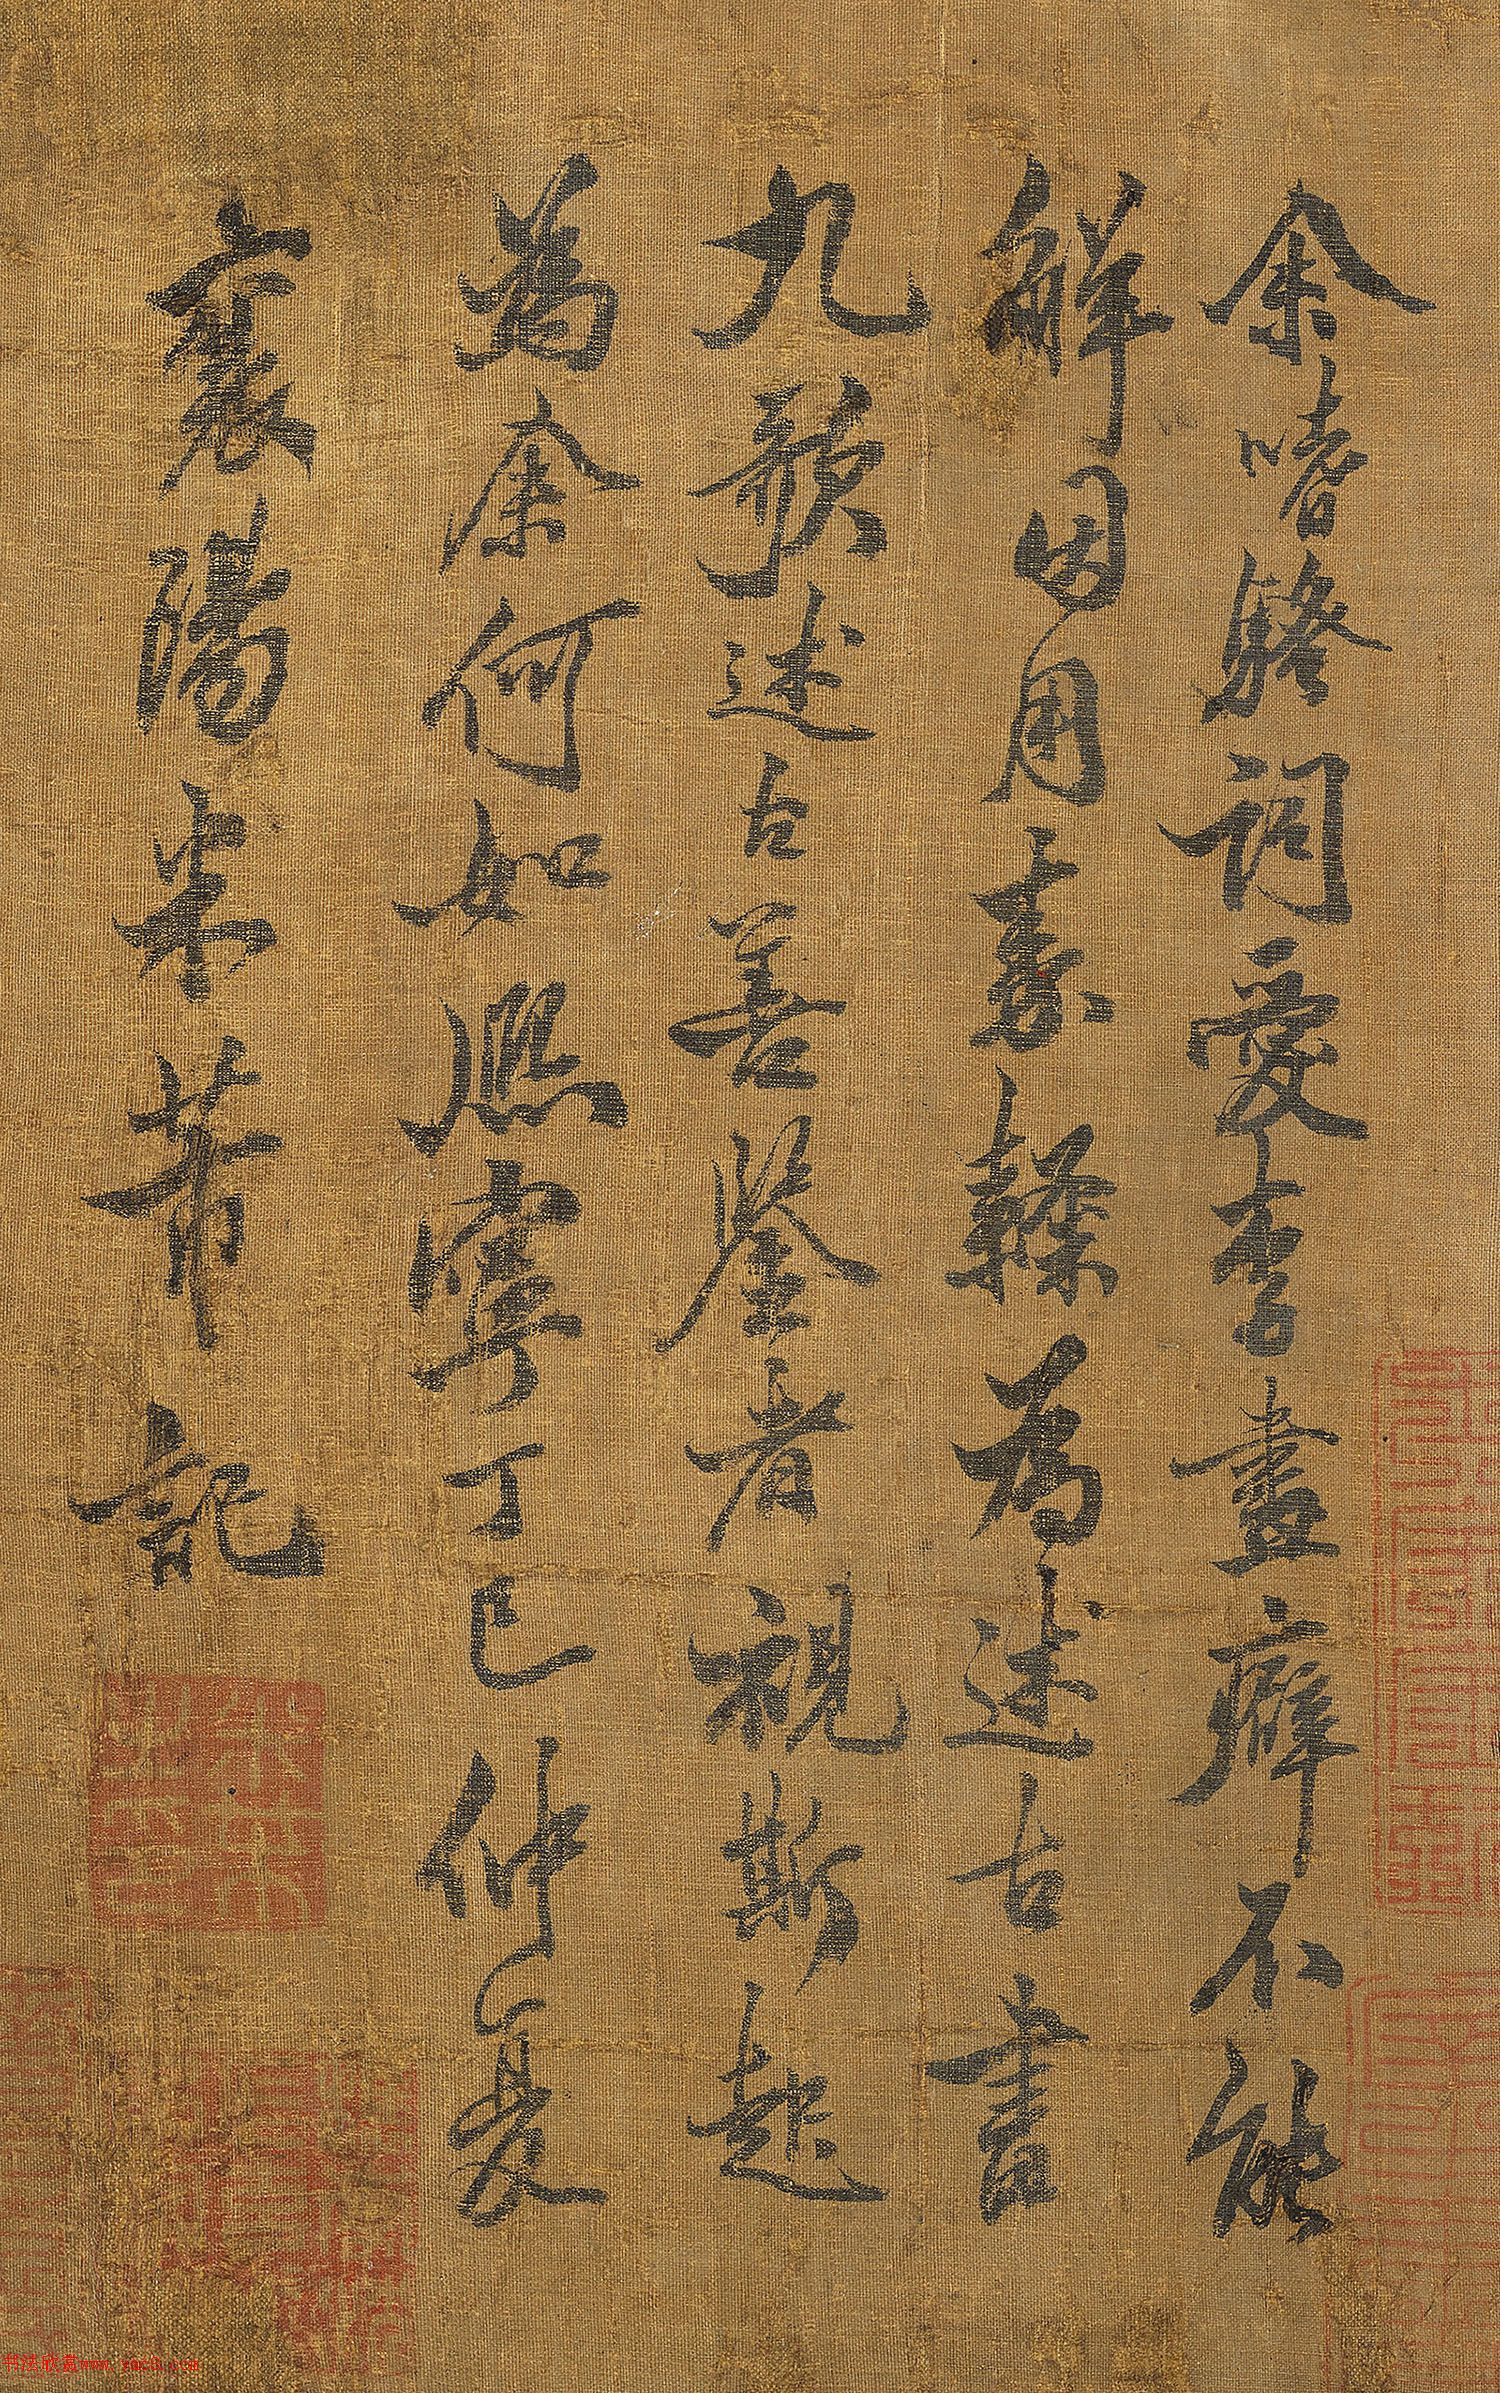 余嗜騷詞愛李畫癖不能
解因用素為述古書
九歌述古善鑒者視斯起
為余何如熙寧丁巳仲夏
襄陽米芾記
书法欣赏www.yac8.com